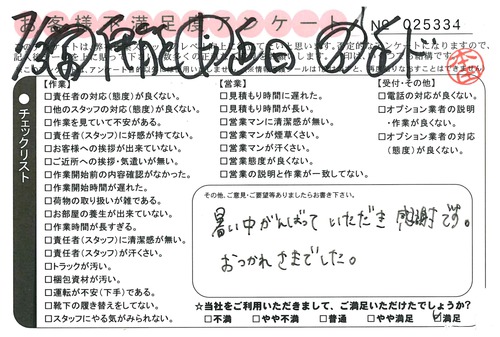 お客様不満足度アンケート
No 025334
チェックリスト
【作業】
□責任者の対応(態度)が良くない。
□他のスタッフの対応(態度)が良くない。
□作業を見ていて不安がある。
□責任者(スタッフ)に好感が持てない。
□お客様への挨拶が出来ていない。
□ご近所への挨拶・気遣いが無い。
□作業開始前の内容確認がなかった。
□作業開始時間が遅れた。
□荷物の取り扱いが雑である。
□お部屋の養生が出来ていない。
□作業時間が長すぎる。
□責任者(スタッフ)に清潔感が無い。
□責任者(スタッフ)が汗くさい。
□トラックが汚い。
□梱包資材が汚い。
□運転が不安(下手)である。
□靴下の履き替えをしてない。
□スタッフにやる気がみられない。
【営業】
□見積もり時間に遅れた。
□見積もり時間が長い。
□営業マンに清潔感が無い。
□営業マンが煙草くさい。
□営業マンが汗くさい。
□営業態度が良くない。
□営業の説明と作業が一致してない。
【受付・その他】
□電話の対応が良くない。
□オプション業者の説明
・作業が良くない。
□オプション業者の対応
(態度)が良くない。
その他、ご意見・ご要望等ありましたらお書き下さい。
暑い中がんばっていただき感謝です。
おつかれさまでした。
☆当社をご利用いただきまして、ご満足いただけたでしょうか?
□不満 □やや不満 □普通 □やや満足 ☑満足